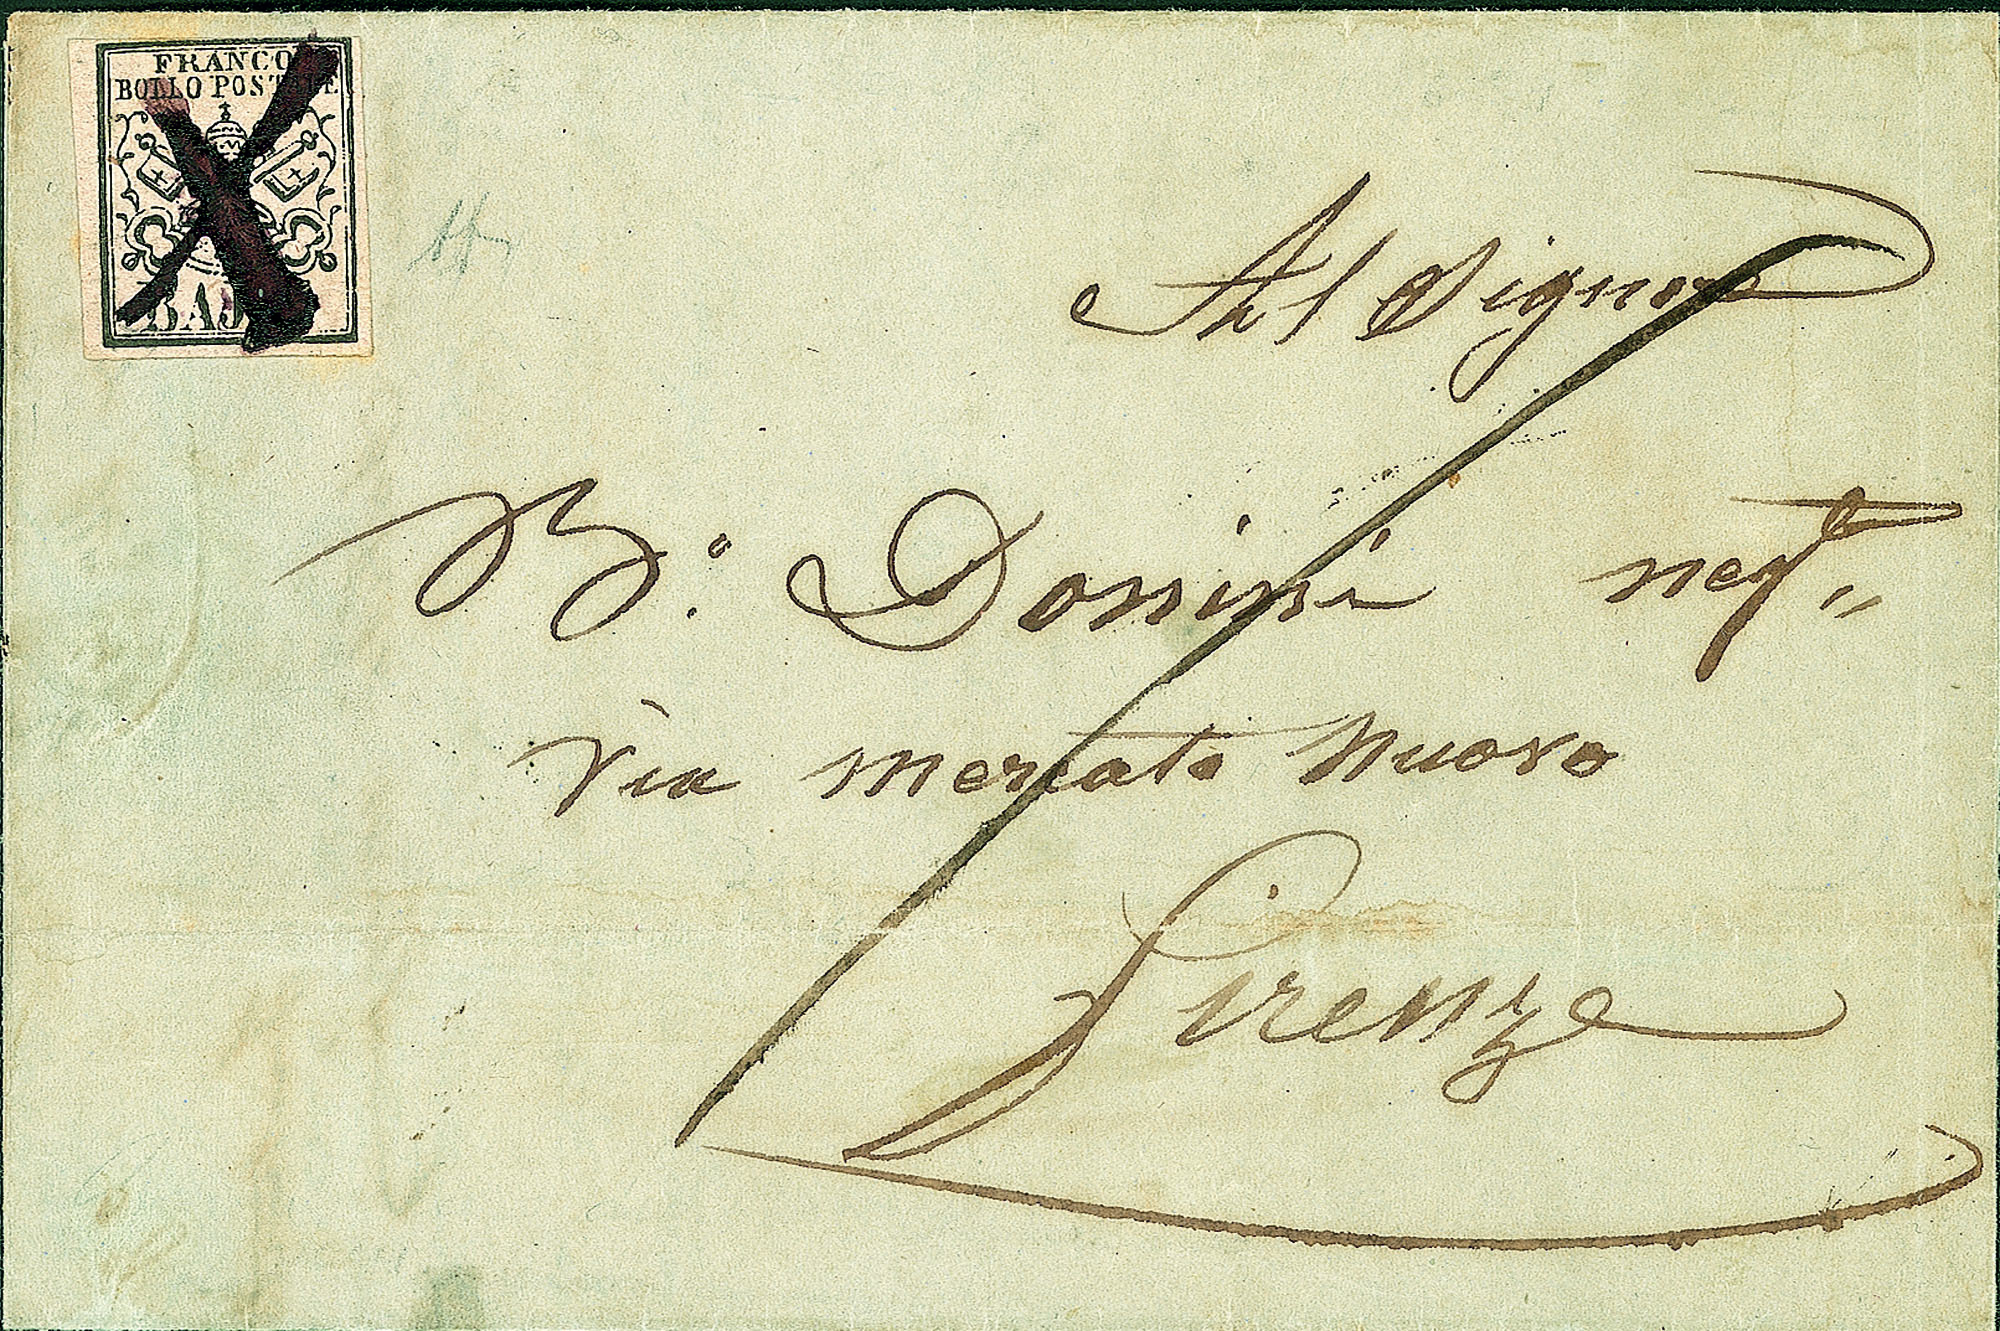 FRANCO
BOLLO POSTALE
BAJ
Al Signore
B.º Donnini negt
Via Mercato Nuovo
Firenze